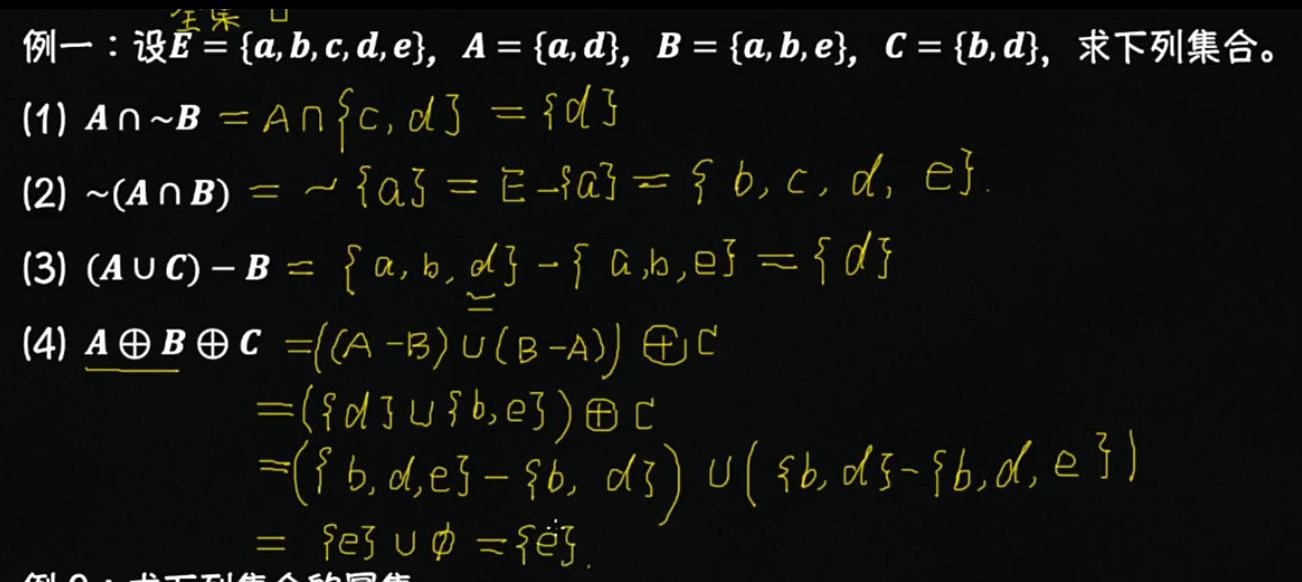 全集 U
例一：设E = {a, b, c, d, e}, A = {a, d}, B = {a, b, e}, C = {b, d}, 求下列集合。
(1) A ∩ ~B = A∩{c, d} = {d}
(2) ~(A ∩ B) = ~{a} = E-{a} = { b, c, d, e}.
(3) (A ∪ C) − B = { a, b, d} - { a, b, e} = {d}
(4) A ⊕ B ⊕ C =((A-B)∪(B-A)) ⊕ C
=({d}∪{b,e})⊕ C
=({b,d,e}-{b, d}) ∪ ({b,d}-{b,d,e})
= {e}∪ϕ={e}.